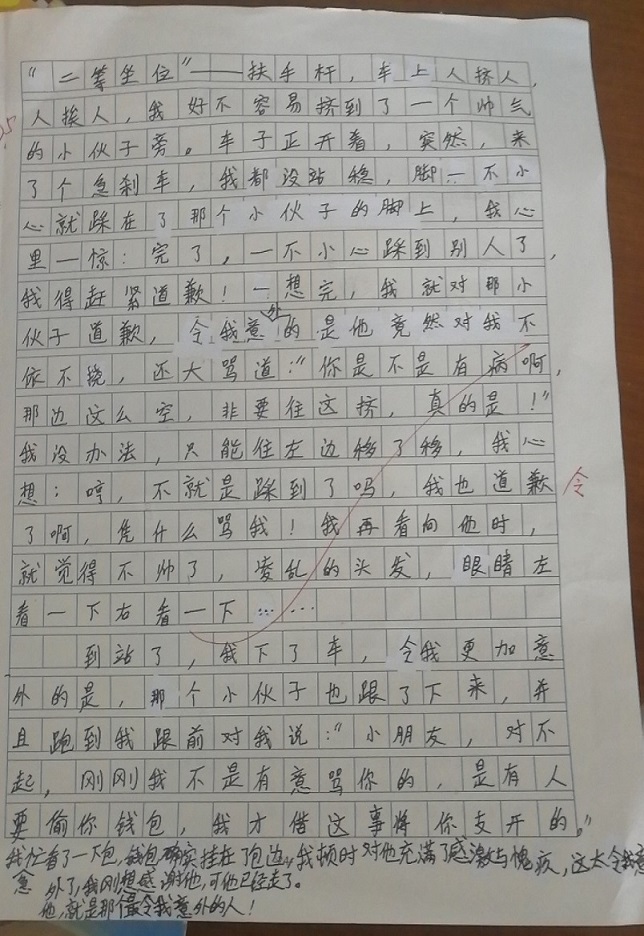 “二等坐位”——扶手杆，车上人挤人，
人挨人，我好不容易挤到了一个帅气
的小伙子旁。车子正开着，突然，来
了个急刹车，我都没站稳，脚一不小
心就踩在了那个小伙子的脚上，我心
里一惊：完了，一不小心踩到别人了，
我得赶紧道歉！一想完，我就对那小
伙子道歉，令我意外的是他竟然对我不
依不挠，还大骂道：“你是不是有病啊，
那边这么空，非要往这挤，真的是！”
我没办法，只能往左边移了移，我心
想：哼，不就是踩到了吗，我也道歉
令
了啊，凭什么骂我！我再看向他时，
就觉得不帅了，凌乱的头发，眼睛左
看一下右看一下……
到站了，我下了车，令我更加意
外的是，那个小伙子也跟了下来，并
且跑到我跟前对我说：“小朋友，对不
起，刚刚我不是有意骂你的，是有人
要偷你钱包，我才借这事将你支开的。”
我忙看了一下包，钱包确实挂在了包边，我顿时对他充满了感激与愧疚，这太令我意
意外了，我刚想感谢他，可他已经走了。
他，就是那个最令我意外的人！